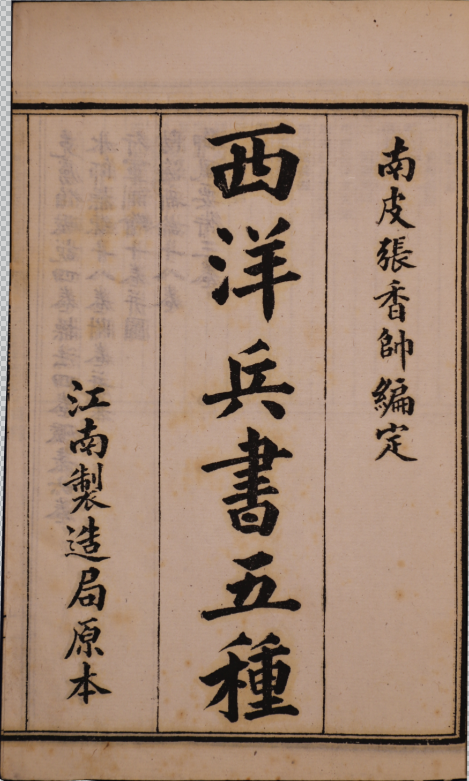 南皮張香帥編定
西洋兵書五種
江南製造局原本